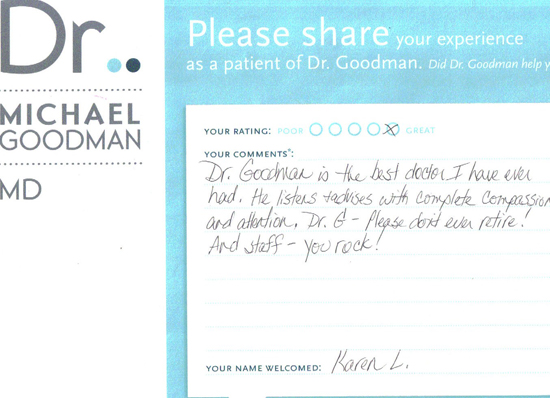 Dr..
MICHAEL
GOODMAN
MD
Please share your experience
as a patient of Dr. Goodman. Did Dr. Goodman help
YOUR RATING: POOR GREAT
YOUR COMMENTS*:
Dr. Goodman is the best doctor I have ever
had. He listens + advises with complete compassion
and attention. Dr. G - Please don't ever retire!
And staff - you rock!
YOUR NAME WELCOMED: Karen L.